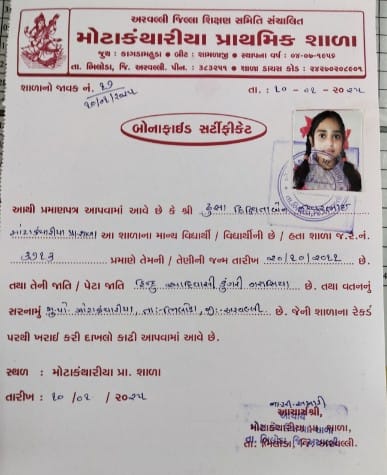 અરવલ્લી જિલ્લા શિક્ષણ સમિતિ સંચાલિત
મોટાકંથારીયા પ્રાથમિક શાળા
જુથ : કાગડામહુડા • બીટ : શામળાજી • સ્થાપના વર્ષ : ૦૪-૦૭-૧૯૫૭
તા. ભિલોડા, જિ. અરવલ્લી. પીન. : ૩૮૩૨૫૧ • શાળા ડાયસ કોડ : ૨૪૨૯૦૨૦૮૯૦૧
શાળાનો જાવક નં. ૩૭
તા. : ૨૦ - ૦૨ - ૨૦૨૫
બોનાફાઈડ સર્ટીફીકેટ
આથી પ્રમાણપત્ર આપવામાં આવે છે કે શ્રી
મોટાકંથારીયા પ્રા.શાળા આ શાળાના માન્ય વિદ્યાર્થી / વિદ્યાર્થીની છે / હતા શાળા જ.ર.નં.
પ્રમાણે તેમની / તેણીની જન્મ તારીખ છે.
તથા તેની જાતિ / પેટા જાતિ હિન્દુ આદિવાસી ડુંગરી ગરાસિયા છે. તથા વતનનું
સરનામું મુ.પો. મોટાકંથારીયા, તા. ભિલોડા, જી. અરવલ્લી છે. જેની શાળાના રેકર્ડ
પરથી ખરાઇ કરી દાખલો કાઢી આપવામાં આવે છે.
સ્થળ : મોટાકંથારીયા પ્રા. શાળા
તારીખ : ૨૦ / ૦૨ / ૨૦૨૫
આચાર્યશ્રી,
મોટાકંથારીયા પ્રા. શાળા,
તા. ભિલોડા, જિ. અરવલ્લી.